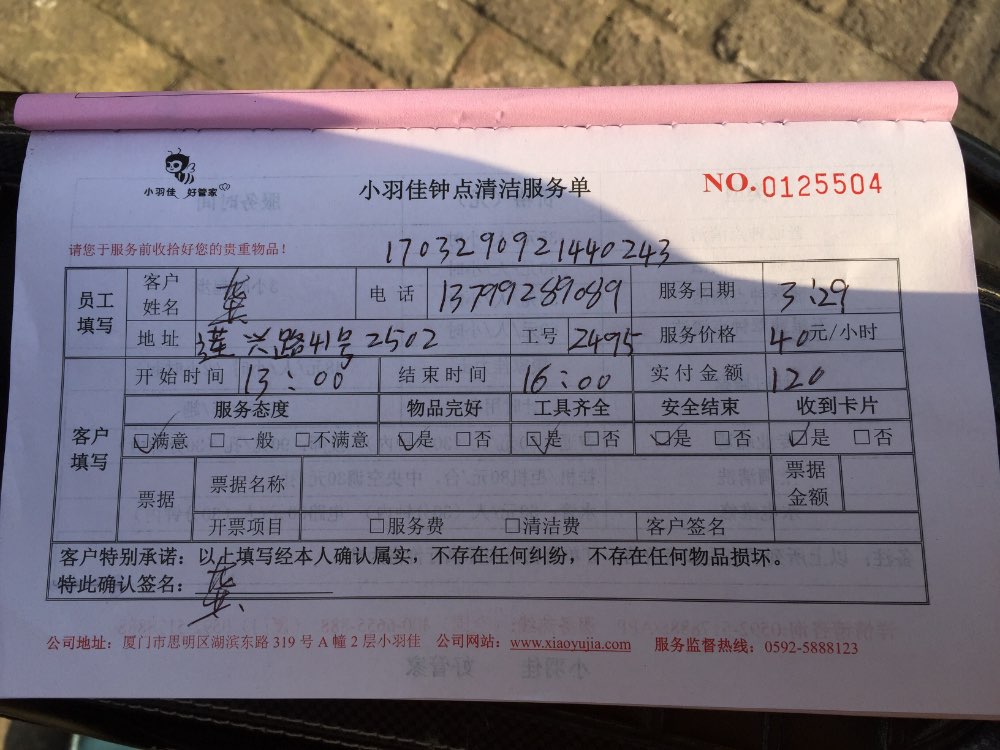 小羽佳 好管家
小羽佳钟点清洁服务单
NO.0125504
请您于服务前收拾好您的贵重物品！
1703290921440243
员工填写 客户姓名 龚 电话 13799289089 服务日期 3:29
地址 莲兴路41号2502 工号 2495 服务价格 40元/小时
客户填写 开始时间 13:00 结束时间 16:00 实付金额 120
服务态度 物品完好 工具齐全 安全结束 收到卡片
☑满意 □一般 □不满意 ☑是 □否 ☑是 □否 ☑是 □否 ☑是 □否
票据 票据名称 票据金额
开票项目 □服务费 □清洁费 客户签名
客户特别承诺：以上填写经本人确认属实，不存在任何纠纷，不存在任何物品损坏。
特此确认签名：龚
公司地址：厦门市思明区湖滨东路 319 号 A 幢 2 层小羽佳 公司网站：www.xiaoyujia.com 服务监督热线：0592-5888123